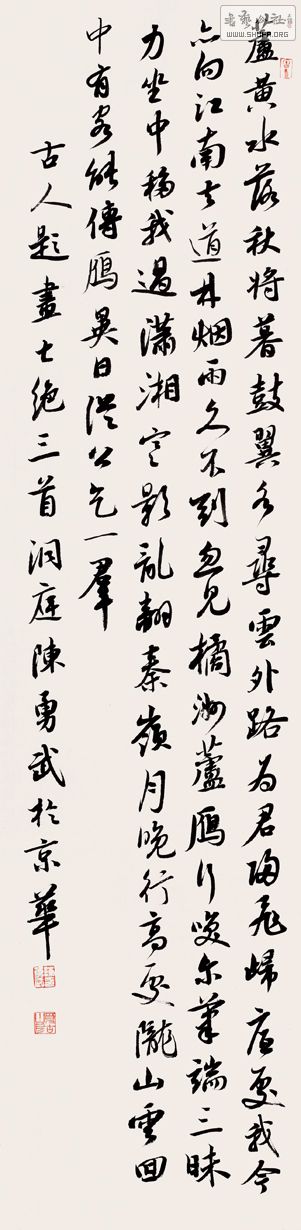 蘆黃水落秋將暮鼓翼各尋雲外路為君向飛歸底處我今
亦向江南去道林烟雨久不到忽見橘洲蘆鴈行喚尔筆端三昧
力坐中穩我過瀟湘寒影亂翻秦嶺月晚行高度隴山雲回
中有客能傳鴈異日從公乞一群
古人題畫七絕三首洞庭陳勇武於京華
WWW.SHUFP.ORG